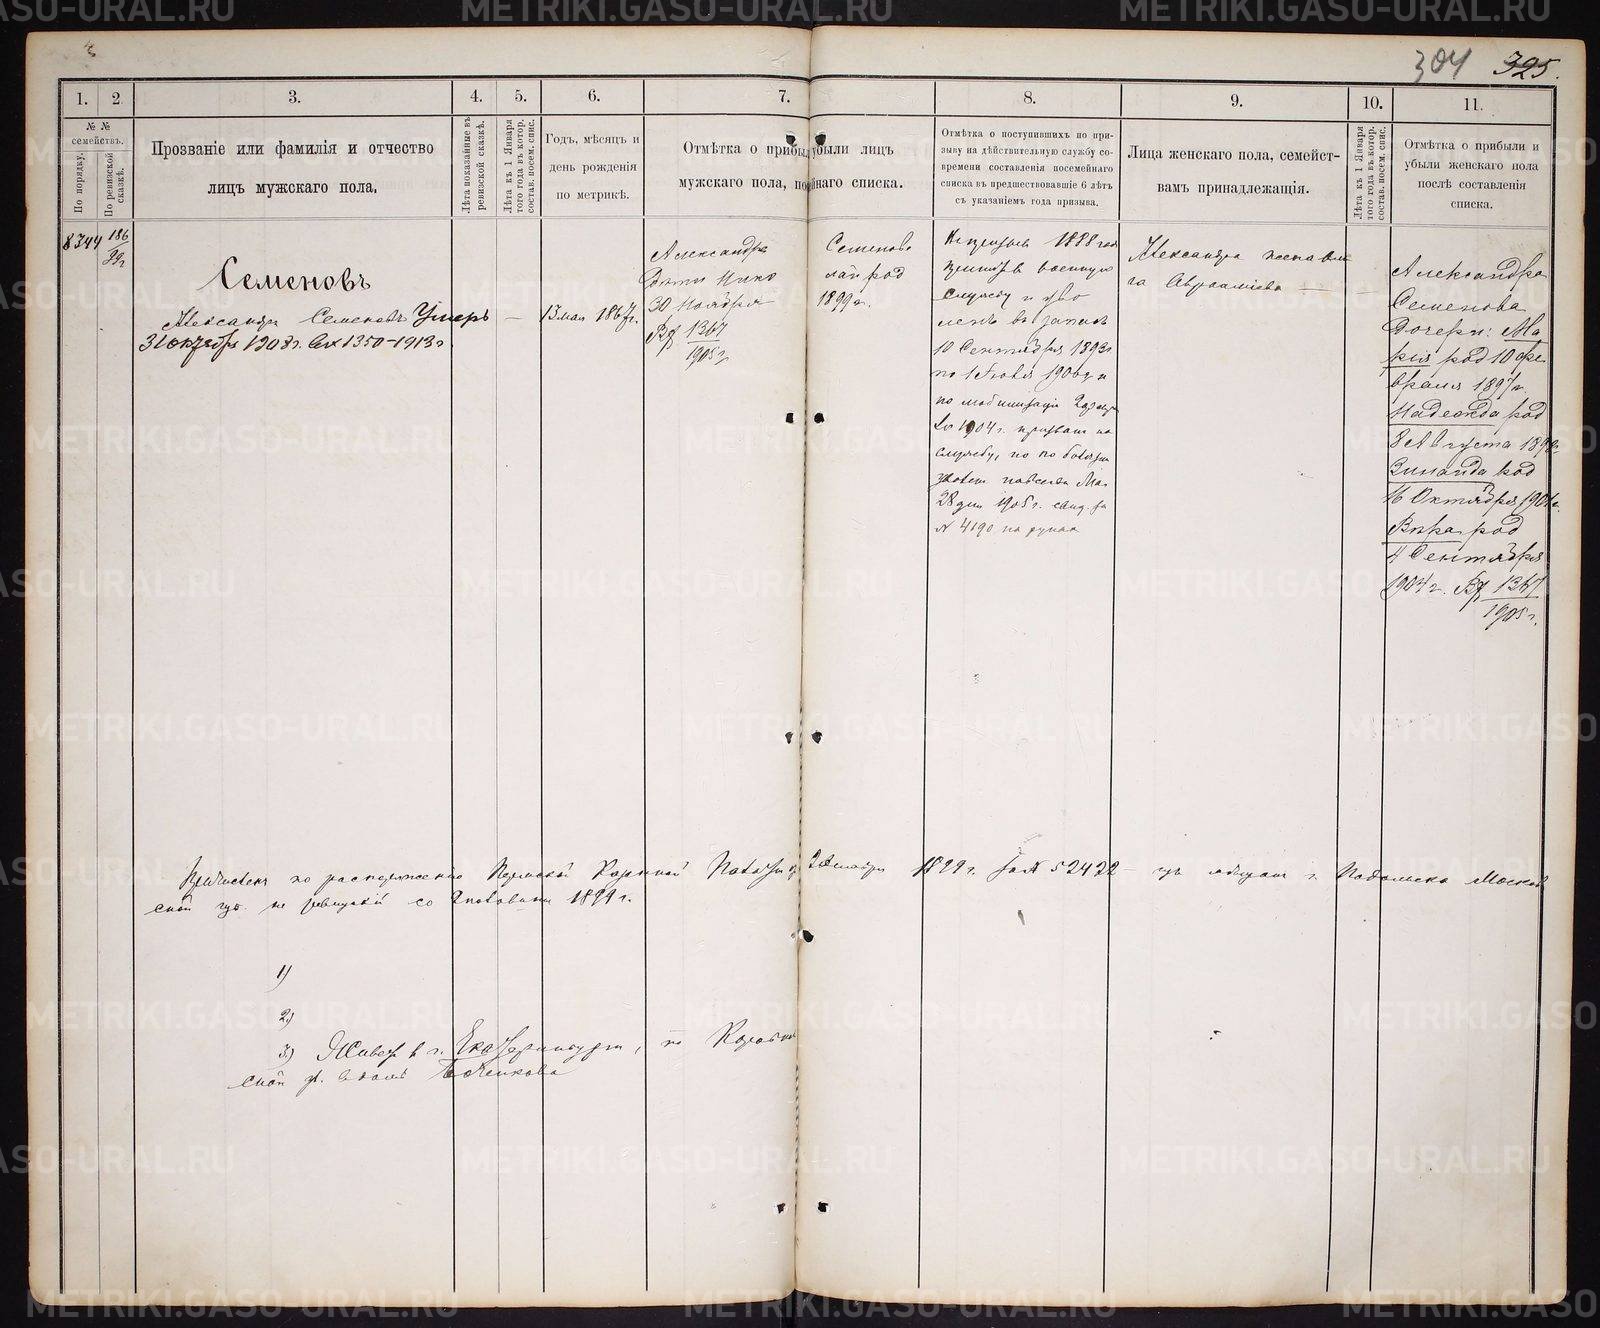 304 325.
1.
2
3.
4.
5.
6.
7.
8.
9.
10.
11.
№ №
семействъ.
По порядку.
По ревизской
сказкѣ.
Прозваніе или фамилія и отчество
лицъ мужскаго пола.
Лѣта показанные въ
ревизской сказкѣ.
Лѣта къ 1 Января
того года въ котор.
состав. посем. спис.
Годъ, мѣсяцъ и
день рожденія
по метрикѣ.
Отмѣтка о прибыли убыли лицъ
мужскаго пола, посемейнаго списка.
Отмѣтка о поступившихъ по при-
зыву на дѣйствительную службу со-
времени составленія посемейнаго
списка въ предшествовавшіе 6 лѣтъ
съ указаніемъ года призыва.
Лица женскаго пола, семейст-
вамъ принадлежащія.
Лѣта къ 1 Января
того года въ котор.
состав. посем. спис.
Отмѣтка о прибыли и
убыли женскаго пола
послѣ составленія
списка.
8344
186
Семеновъ
Александръ Семеновъ Умеръ
31 октября 1908 г. 1350-1913 г.
13 мая 1867 г.
Александра Семенова
Дѣти: Николай род
30 Ноября 1899 г.
1367
1905 г.
1888 года
военную
службу и уво
ленъ въ запасъ
10 Сентября 1893 г.
по мобилизаціи
1904 г. призванъ на
службу, но по болѣзни
28 дня 1905 г.
№ 4190 на рукахъ
Александра
Авраамієва
Александра
Семенова
Дочери: Ма
рія род 10 фе
враля 1897 г.
Надежда род
8 Августа 1898 г.
Зинаида род
16 Октября 1901 г.
Вѣра род
4 Сентября
1904 г. 1367
1905 г.
Причисленъ по распоряженію Пермской Казенной Палаты 1899 г. за № 52422 г. Подольска Москов
ской губ. не ревизскій со 2 половины 1899 г.
1)
2)
3) Живетъ въ г. Екатеринбургѣ, по
ской ул. въ домѣ